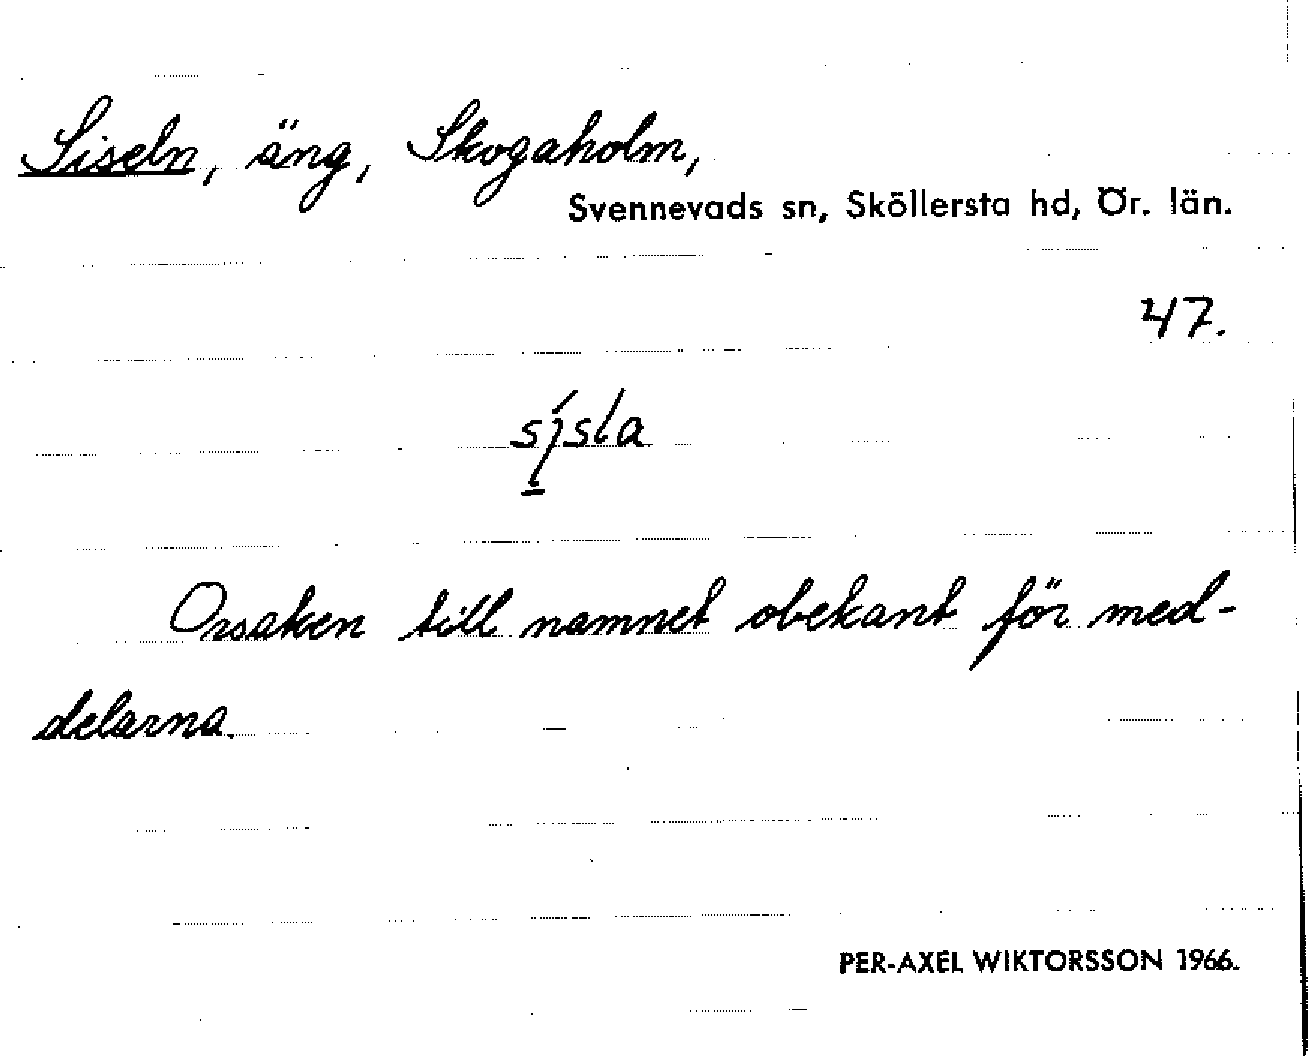 Siseln, äng, Skogaholm,
Svennevads sn, Sköllersta hd, Ör. län.
47.
Orsaken till namnet obekant för med-
delarna.
PER-AXEL WIKTORSSON 1966.